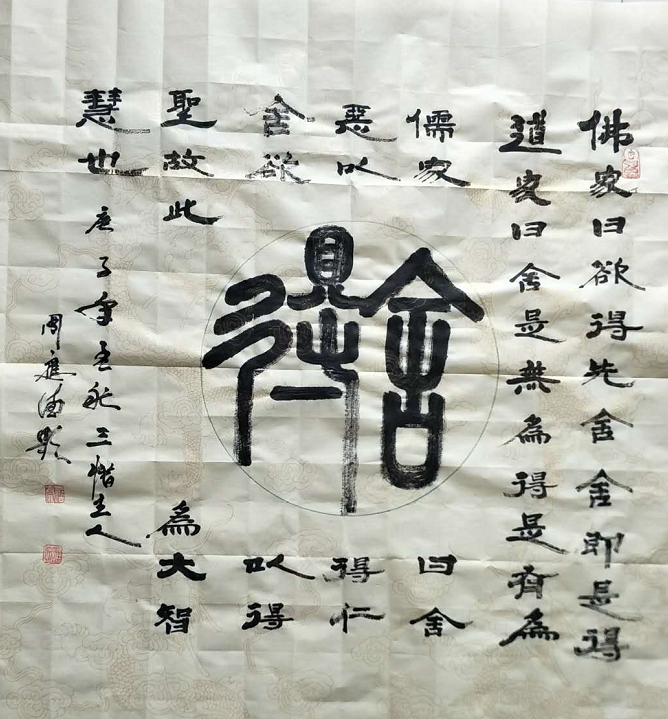 佛家曰欲得先舍舍即是得
道家曰舍是無為得是有為
儒家曰舍
惡以得仁
舍欲以得
聖故此為大智
慧也
庚子年孟秋三惜主人
周德題
舍得